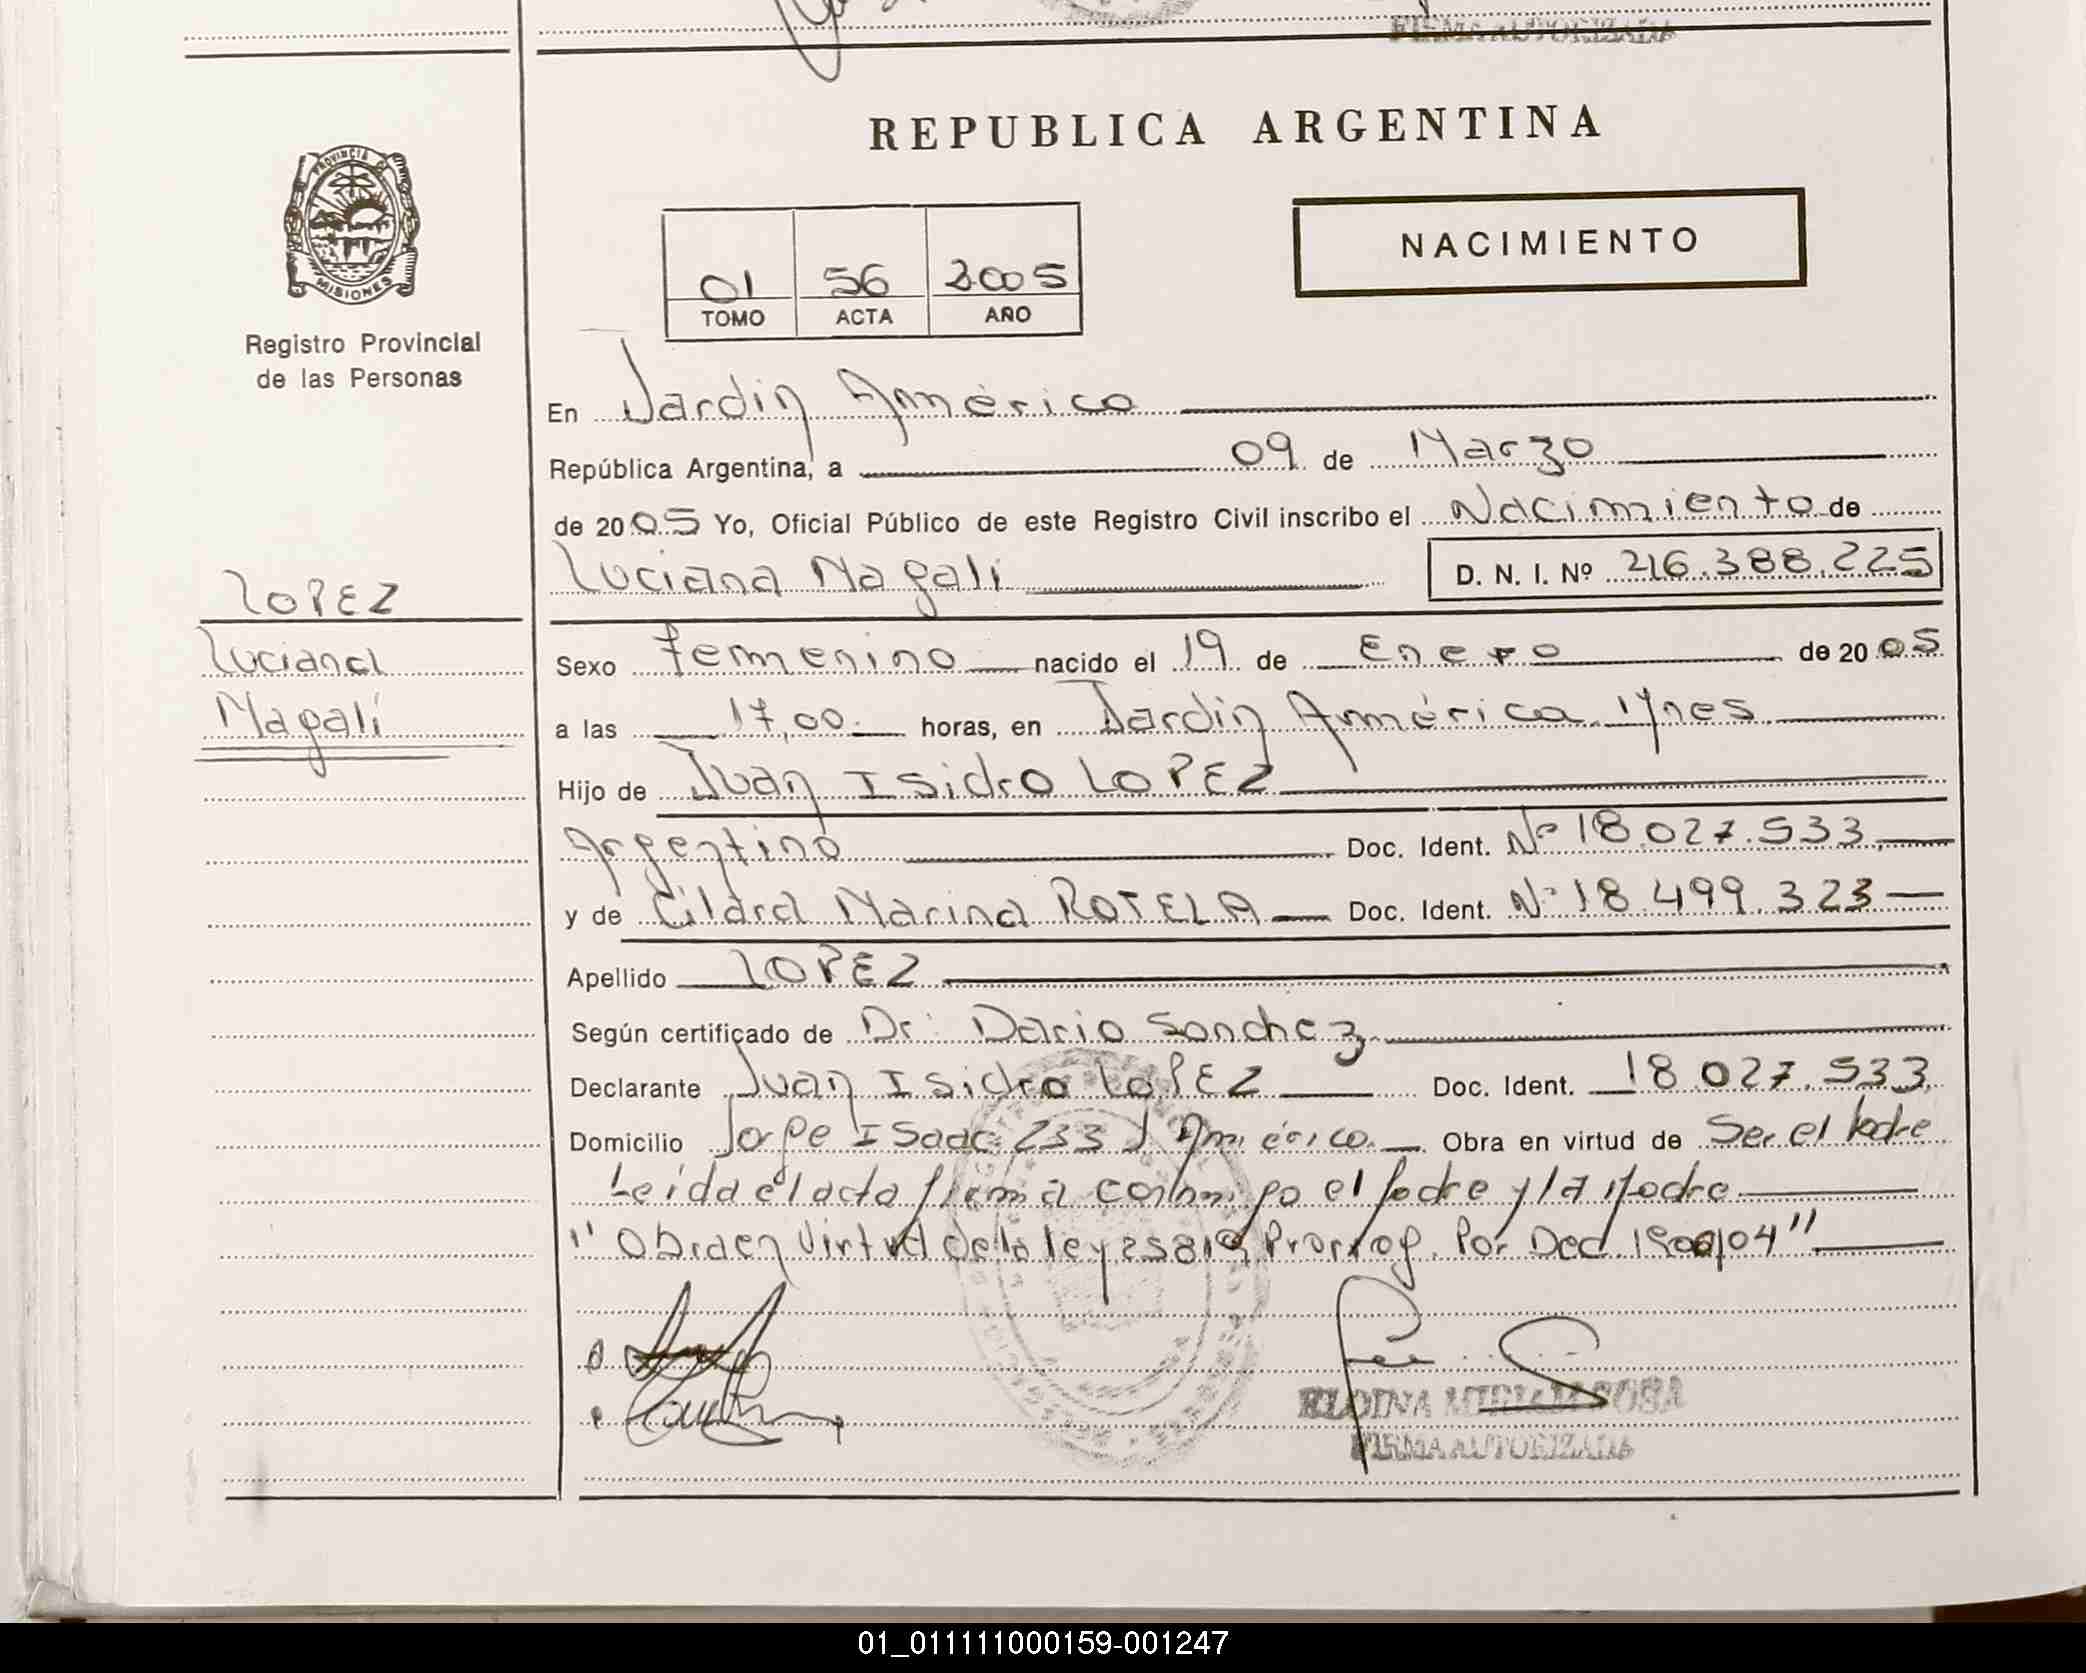 FIRMA AUTORIZADA
REPUBLICA ARGENTINA
PROVINCIA DE
MISIONES
Registro Provincial
de las Personas
01 56 2005
TOMO ACTA AÑO
NACIMIENTO
En Jardin América
República Argentina, a 09 de Marzo
de 2005 Yo, Oficial Público de este Registro Civil inscribo el Nacimiento de
Luciana Magali D. N. I. Nº 216.388.225
LOPEZ
Luciana
Magalí
Sexo femenino nacido el 19 de Enero de 2005
a las 17,00 horas, en Jardin América Mnes
Hijo de Juan Isidro LOPEZ
Argentino Doc. Ident. Nº 18.027.533
y de Cilara Marina ROTELA Doc. Ident. Nº 18.499.323
Apellido LOPEZ
Según certificado de Dr: Dario Sanchez
Declarante Juan Isidro LOPEZ Doc. Ident. 18.027.533
Domicilio Jorge Isaac 233 J América Obra en virtud de Ser el Padre
Leida el acta firma conmigo el Padre y la Madre
"Obra en Virtud de la ley 25819 Prorrog. Por Dec. 1900/04"
ELOINA MIRIAM SOSA
FIRMA AUTORIZADA
01_011111000159-001247